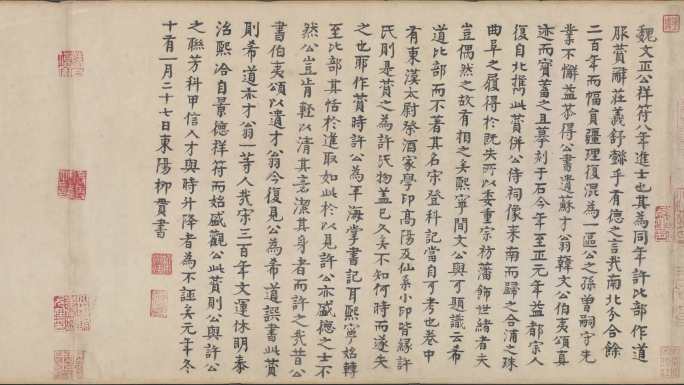 魏文正公祥符八年進士也其為同年許比部作道
服贊辭莊義舒辭乎有德之言哉南北分合餘
二百年而幅貟疆理復混為一區公之孫曽嗣守先
業不懈益恭得公書遺蘇才翁韓文公伯夷頌真
迹而寳蓄之且摹刻于石今年至正元年益都宗人
復自北携此賛併公侍祠像来南而歸之合浦之珠
曲阜之履得於既失所以委重宗祊藩飾世緒者夫
豈偶然之故有相之矣熈寧間文公與可題識云希
道比部而不著其名宋登科記當自可考也卷中
有東漢太尉祭酒家學印高陽及仙系小印皆縁許
氏則是賛之為許氏物蓋已久矣不知何時而遂失
之也耶作賛時許公為平海掌書記耳熈寧始轉
至比部其恬於進取如此於以見許公亦盛德之士不
然公豈肯輕以清其言潔其身者而許之哉昔公
書伯夷頌以遺才翁今復見公為希道譔書此賛
則希道亦才翁一等人哉宋三百年文運休明泰
治熈洽自景德祥符而始盛觀公此賛則公與許公
之聯芳科甲信人才與時升降者為不誣矣元年冬
十有一月二十七日東陽柳貫書